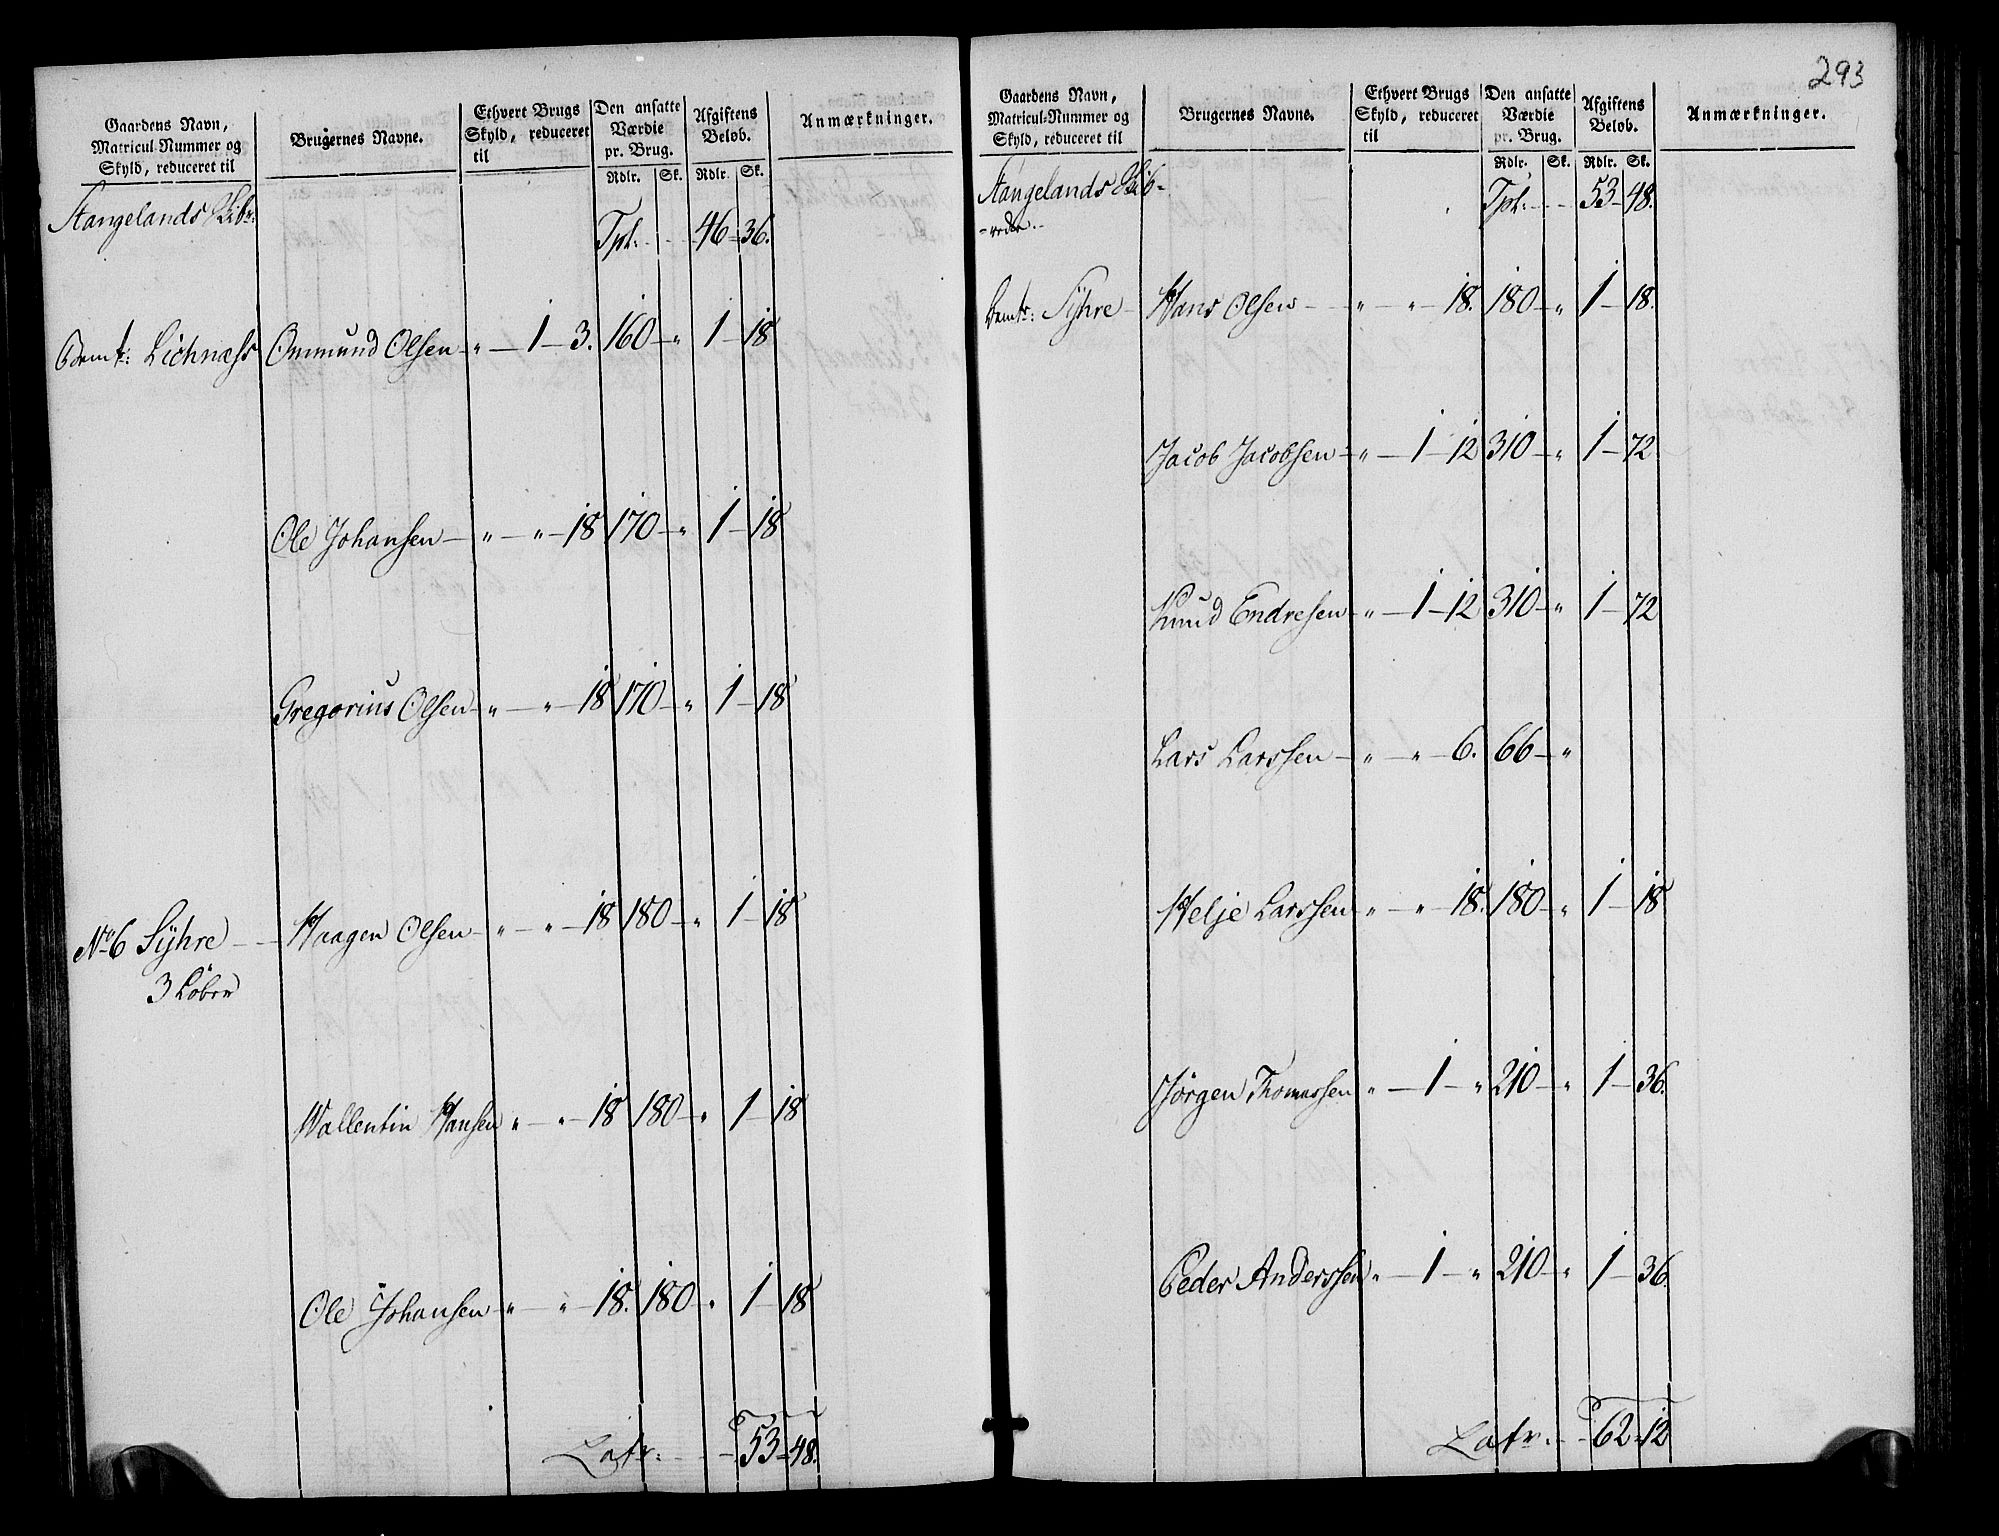 Gaardens Navn,
Matricul-Nummer og
Skyld, reduceret til
Brugernes Navne.
Ethvert Brugs
Skyld, reduceret
til
Den ansatte
Værdie
pr. Brug.
Rdlr. Sk.
Afgiftens
Beløb.
Rdlr. Sk.
Anmærkninger.
Stangelands Skibr:
Tpt: 46 - 36.
Lichnæss Ommund Olsen - " - 1 - 3. 160 - " 1 - 18
Ole Johansen - " - " - 18 170 - " 1 - 18
Gregorius Olsen - " - " - 18 170 - " 1 - 18
No 6 Syhre - - Haagen Olsen - " - " - 18 180 - " 1 - 18
3 Løber
Wallentin Hansen " - " - 18 180 - " 1 - 18
Ole Johansen - " - " - 18. 180 " 1 - 18
Latr: - - 53 - 48.
293
Gaardens Navn,
Matricul-Nummer og
Skyld, reduceret til
Brugernes Navne.
Ethvert Brugs
Skyld, reduceret
til
Den ansatte
Værdie
pr. Brug.
Rdlr. Sk.
Afgiftens
Beløb.
Rdlr. Sk.
Anmærkninger.
Stangelands Skib-
-rede.
Tpt: - - 53 - 48.
Syhre - Hans Olsen - " " - 18. 180 - " 1 - 18.
Jacob Jacobsen - " - 1 - 12 310 - " 1 - 72
Knud Endresen - " - 1 - 12 310 - " 1 - 72
Lars Larssen - " - " - 6. 66 - "
Helje Larssen - " - " - 18. 180 - " 1 - 18
Jørgen Thomassen " - 1 - " 210 - " 1 - 36.
Peder Anderssen " - 1 - " 210 - " 1 - 36.
Latr. - - 62 - 12